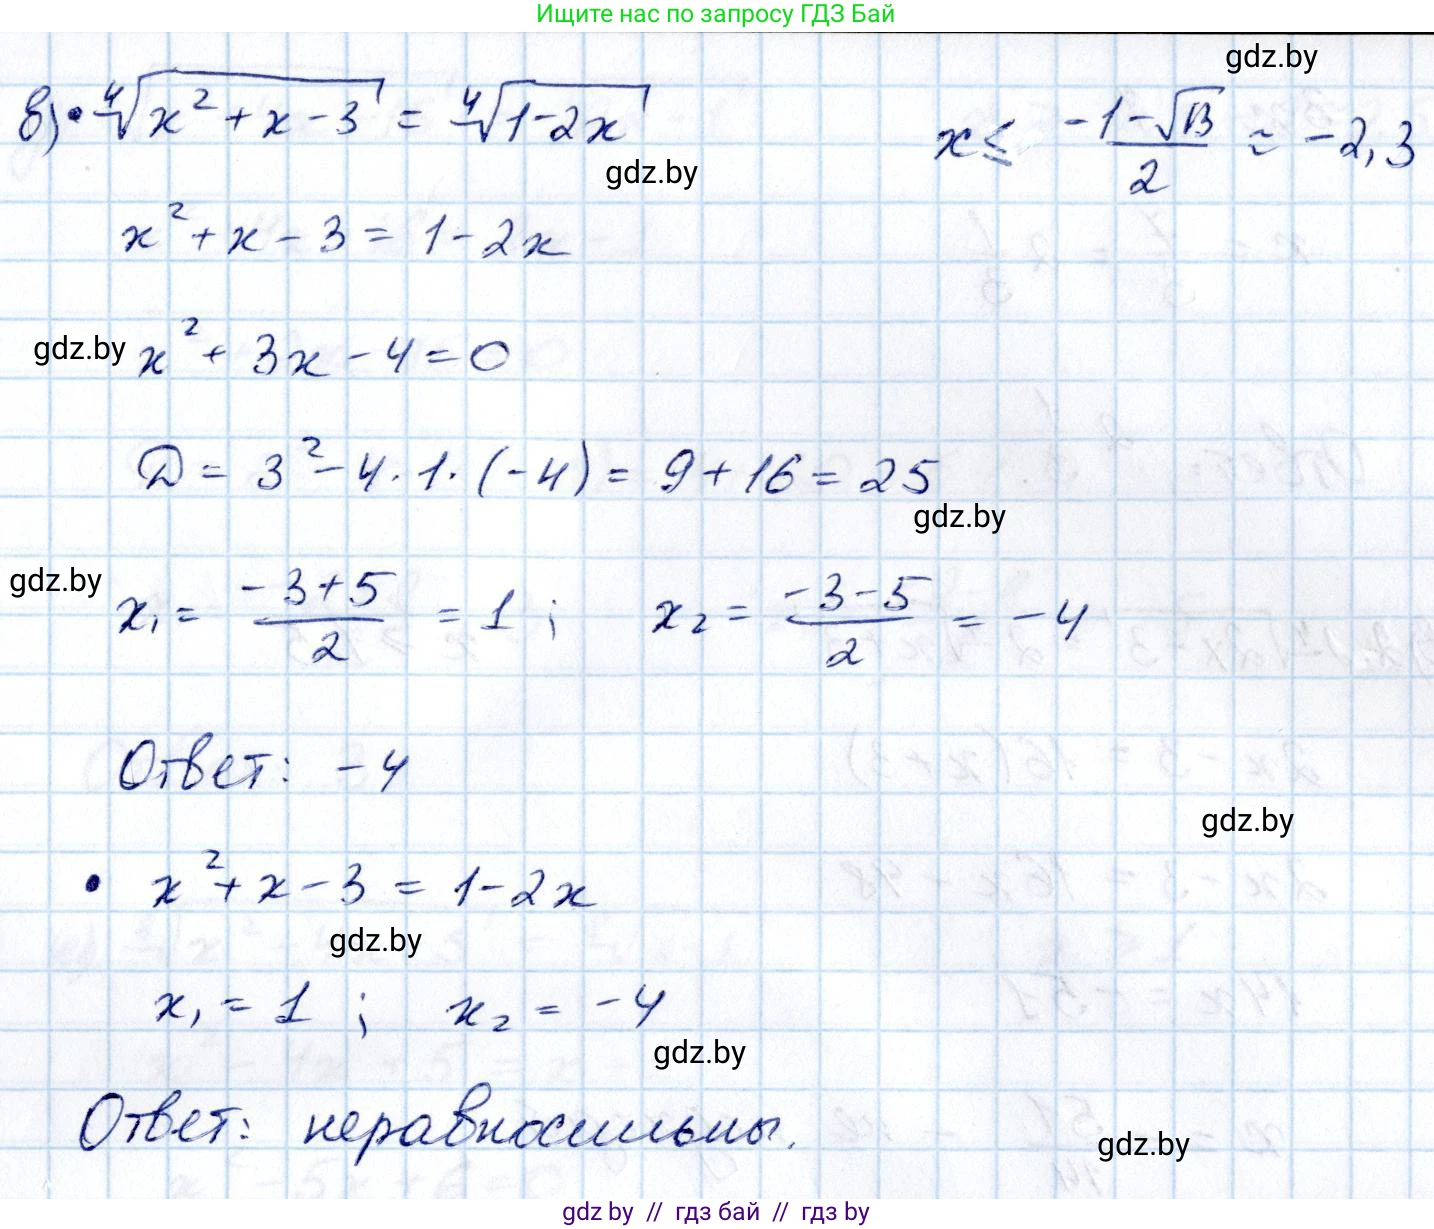 Ищите нас по запросу ГДЗ Бай
gdz.by
в) • ∜(x² + x - 3) = ∜(1 - 2x)
x ≤ (-1 - √13)/2 ≈ -2,3
gdz.by
x² + x - 3 = 1 - 2x
gdz.by
x² + 3x - 4 = 0
D = 3² - 4 · 1 · (-4) = 9 + 16 = 25
gdz.by
gdz.by
x₁ = (-3 + 5)/2 = 1 ; x₂ = (-3 - 5)/2 = -4
Ответ: -4
gdz.by
• x² + x - 3 = 1 - 2x
gdz.by
x₁ = 1 ; x₂ = -4
gdz.by
Ответ: неравносильны.
gdz.by
gdz by // гдз бай // гдз by